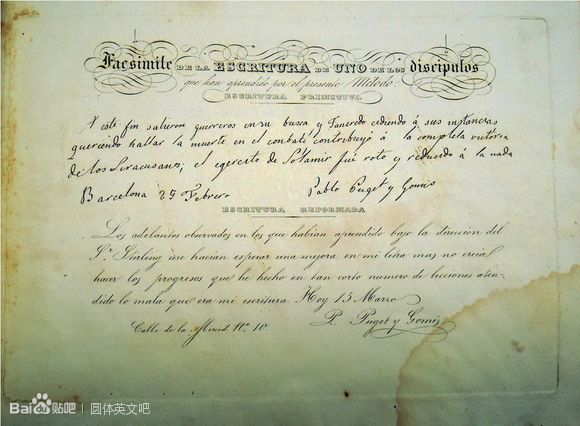 Facsimile DE LA ESCRITURA DE UNO DE LOS discipulos
que han aprendido por el presente Método.
ESCRITURA PRIMITIVA
A este fin salieron guerreros en su busca y Tancredo cediendo á sus instancias
queriendo hallar la muerte en el combate contribuyó á la completa victoria
de los Siracusanos; el egercito de Solamir fué roto y reducido á la nada
Barcelona 25 Febrero Pablo Puget y Gomis
ESCRITURA REFORMADA
Los adelantos observados en los que habian aprendido bajo la direccion del
Sr. Stirling me hacian esperar una mejora en mi letra mas no creia
hacer los progresos que he hecho en tan corto numero de lecciones aten-
dido lo mala que era mi escritura. Hoy 15 Marzo
Calle de la Merced nº. 10 P. Puget y Gomis
Bai du 贴吧 | 圆体英文吧